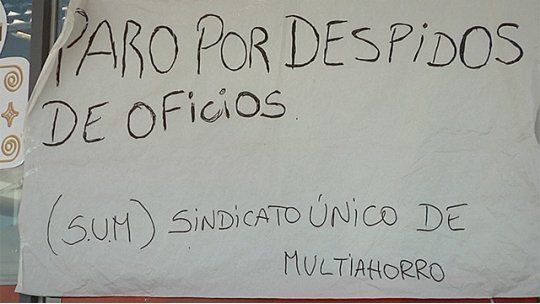 PARO POR DESPIDOS
DE OFICIOS.
(S.U.M) SINDICATO ÚNICO DE
MULTIAHORRO